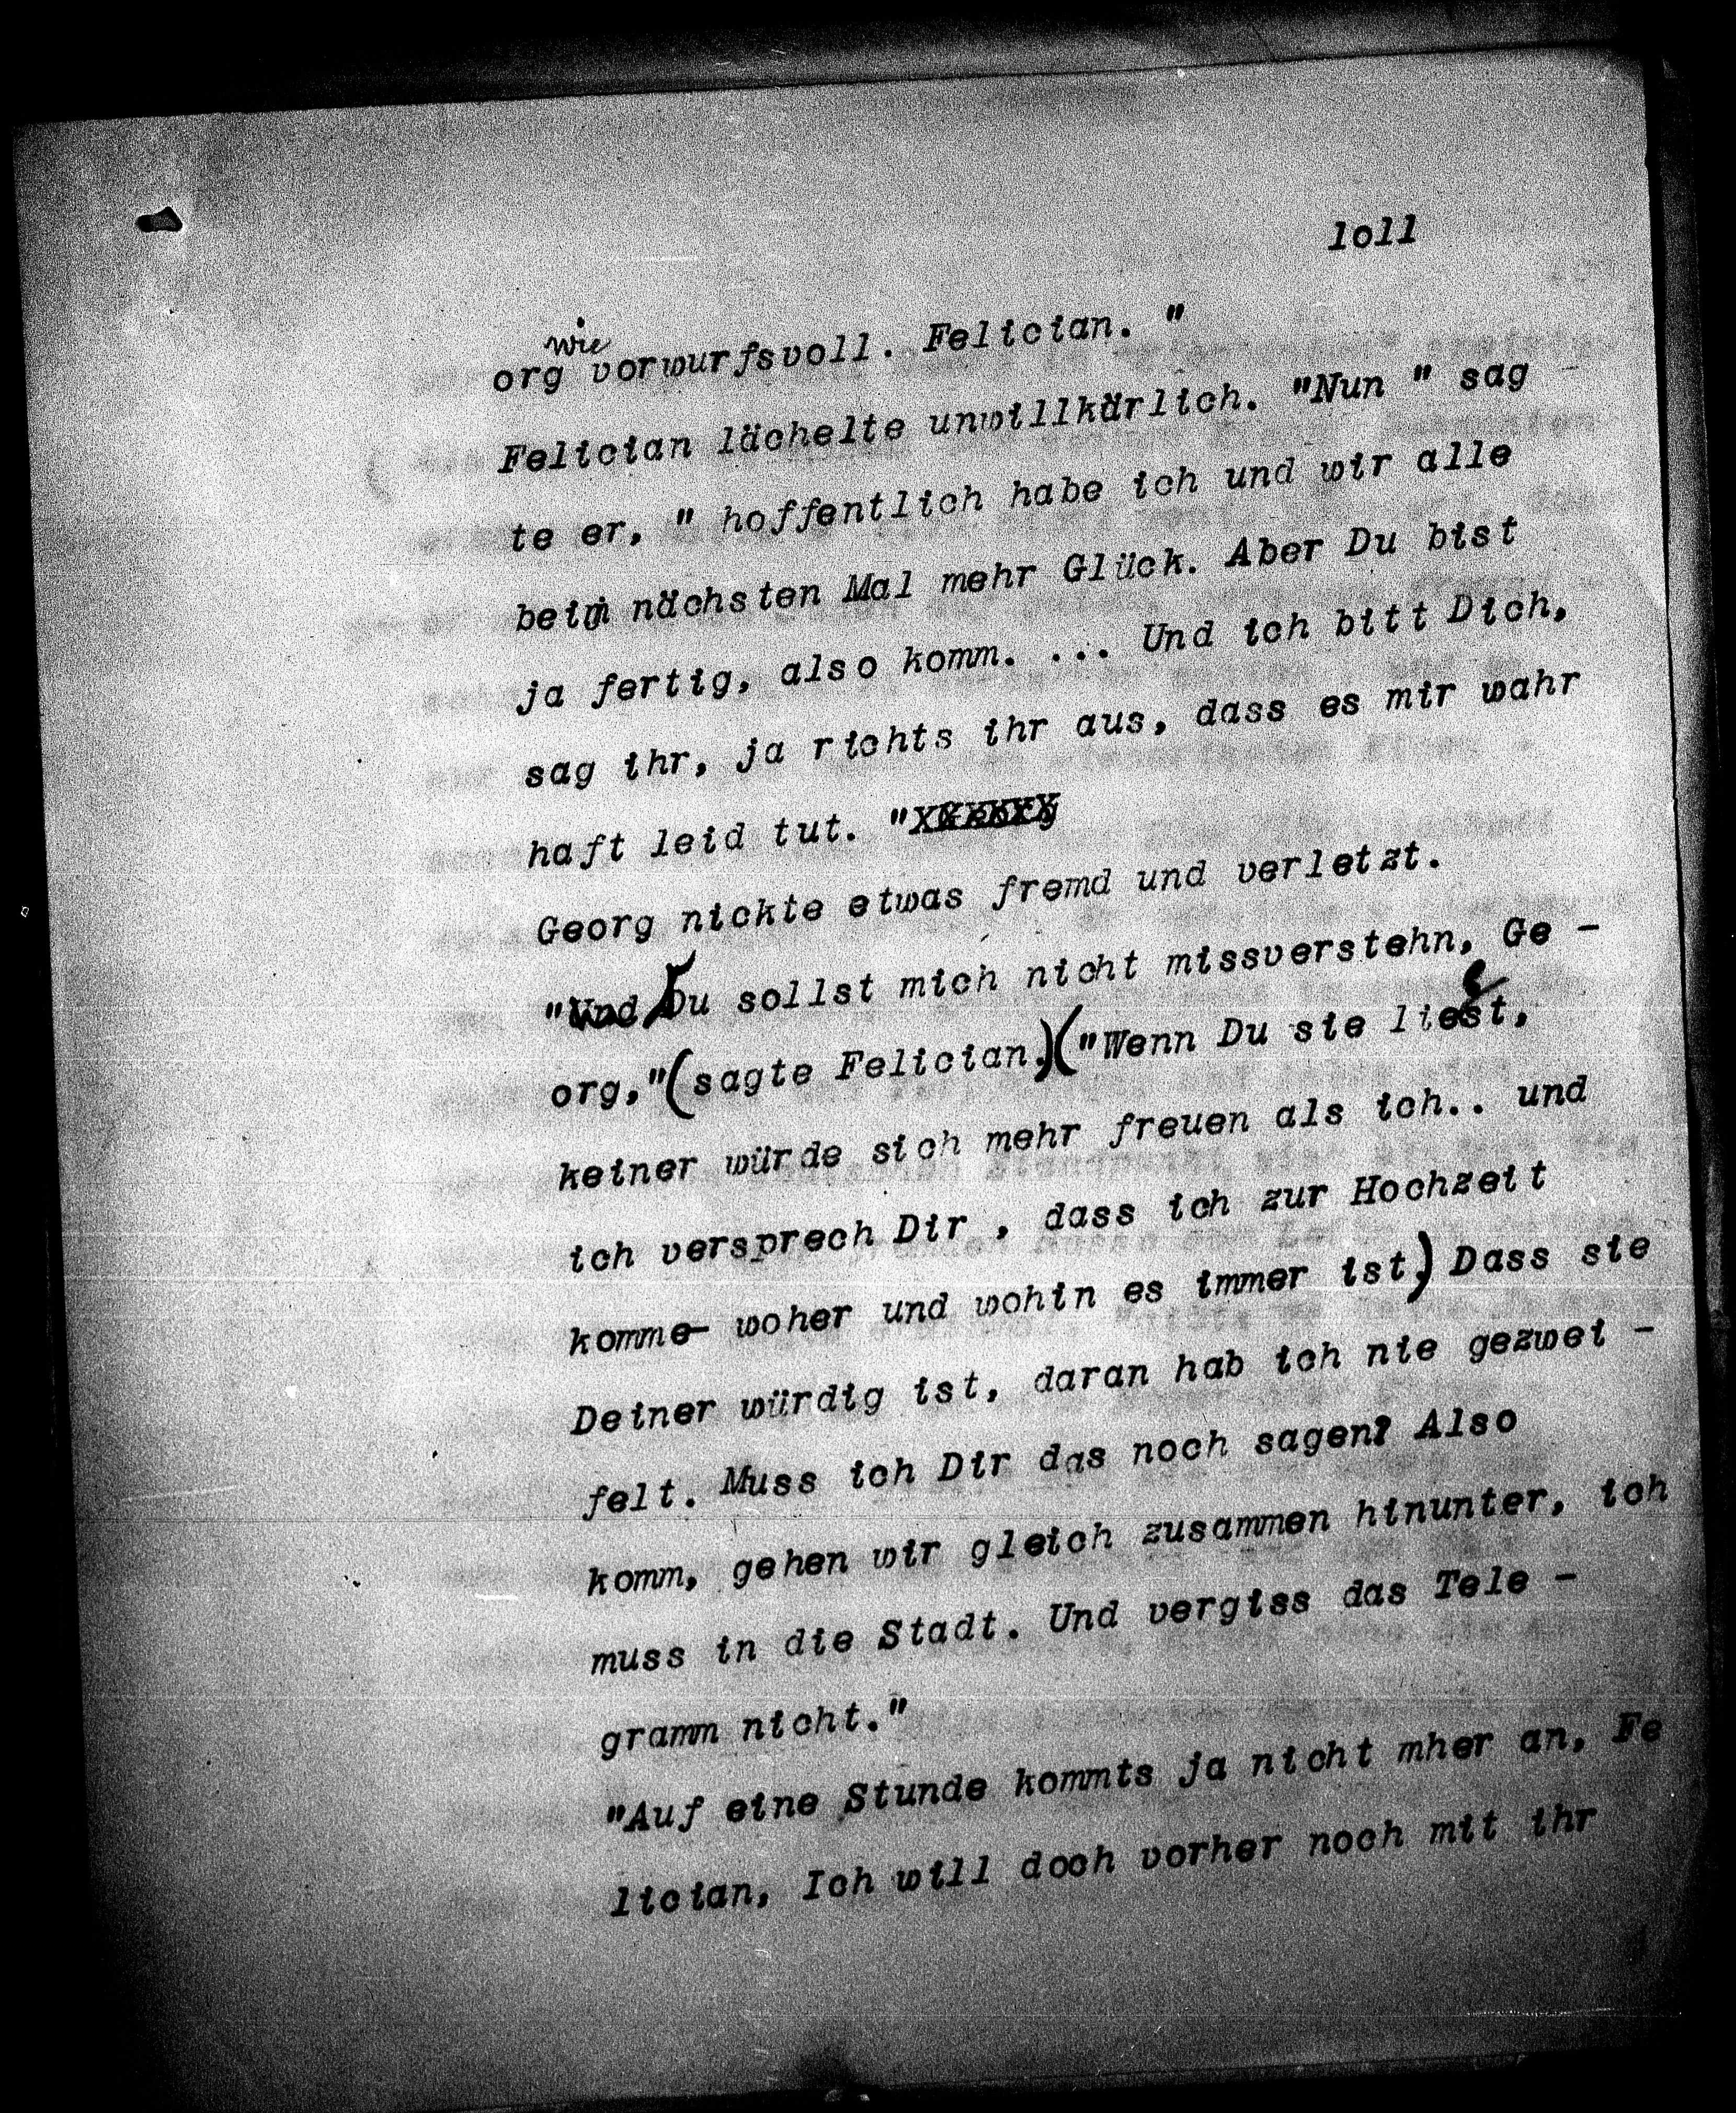 loll
wie
org vorwurfsvoll. Felician. "
Felician lächelte unwillkürlich. "Nun " sag
te er, " hoffentlich habe ich und wir alle
beim nächsten Mal mehr Glück. Aber Du bist
ja fertig, also komm. ... Und ich bitt Dich,
sag ihr, ja richts ihr aus, dass es mir wahr
haft leid tut. "
Georg nickte etwas fremd und verletzt.
"Und Du sollst mich nicht missverstehn, Ge -
org,"(sagte Felician.)("Wenn Du sie liest,
keiner würde sich mehr freuen als ich.. und
ich versprech Dir , dass ich zur Hochzeit
komme- woher und wohin es immer ist.) Dass sie
Deiner würdig ist, daran hab ich nie gezwei -
felt. Muss ich Dir das noch sagen? Also
komm, gehen wir gleich zusammen hinunter, ich
muss in die Stadt. Und vergiss das Tele -
gramm nicht."
"Auf eine Stunde kommts ja nicht mher an, Fe
lician, Ich will doch vorher noch mit ihr